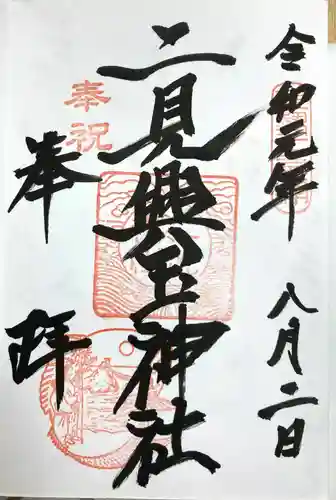 令和元年 八月二日
二見興玉神社
奉祝
奉拝